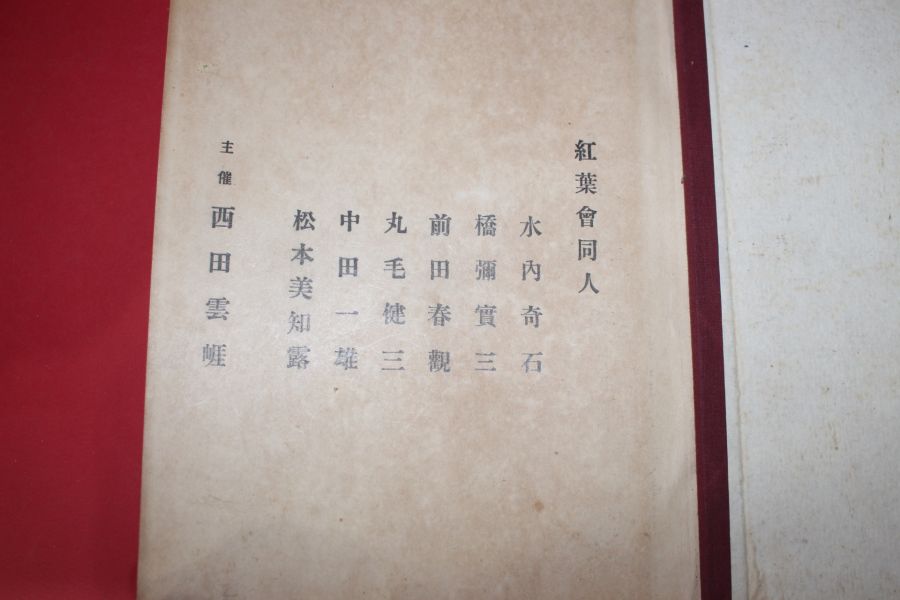 紅葉會同人
水內奇石
橋彌實三
前田春觀
丸毛健三
中田一雄
松本美知露
主催 西田雲崕